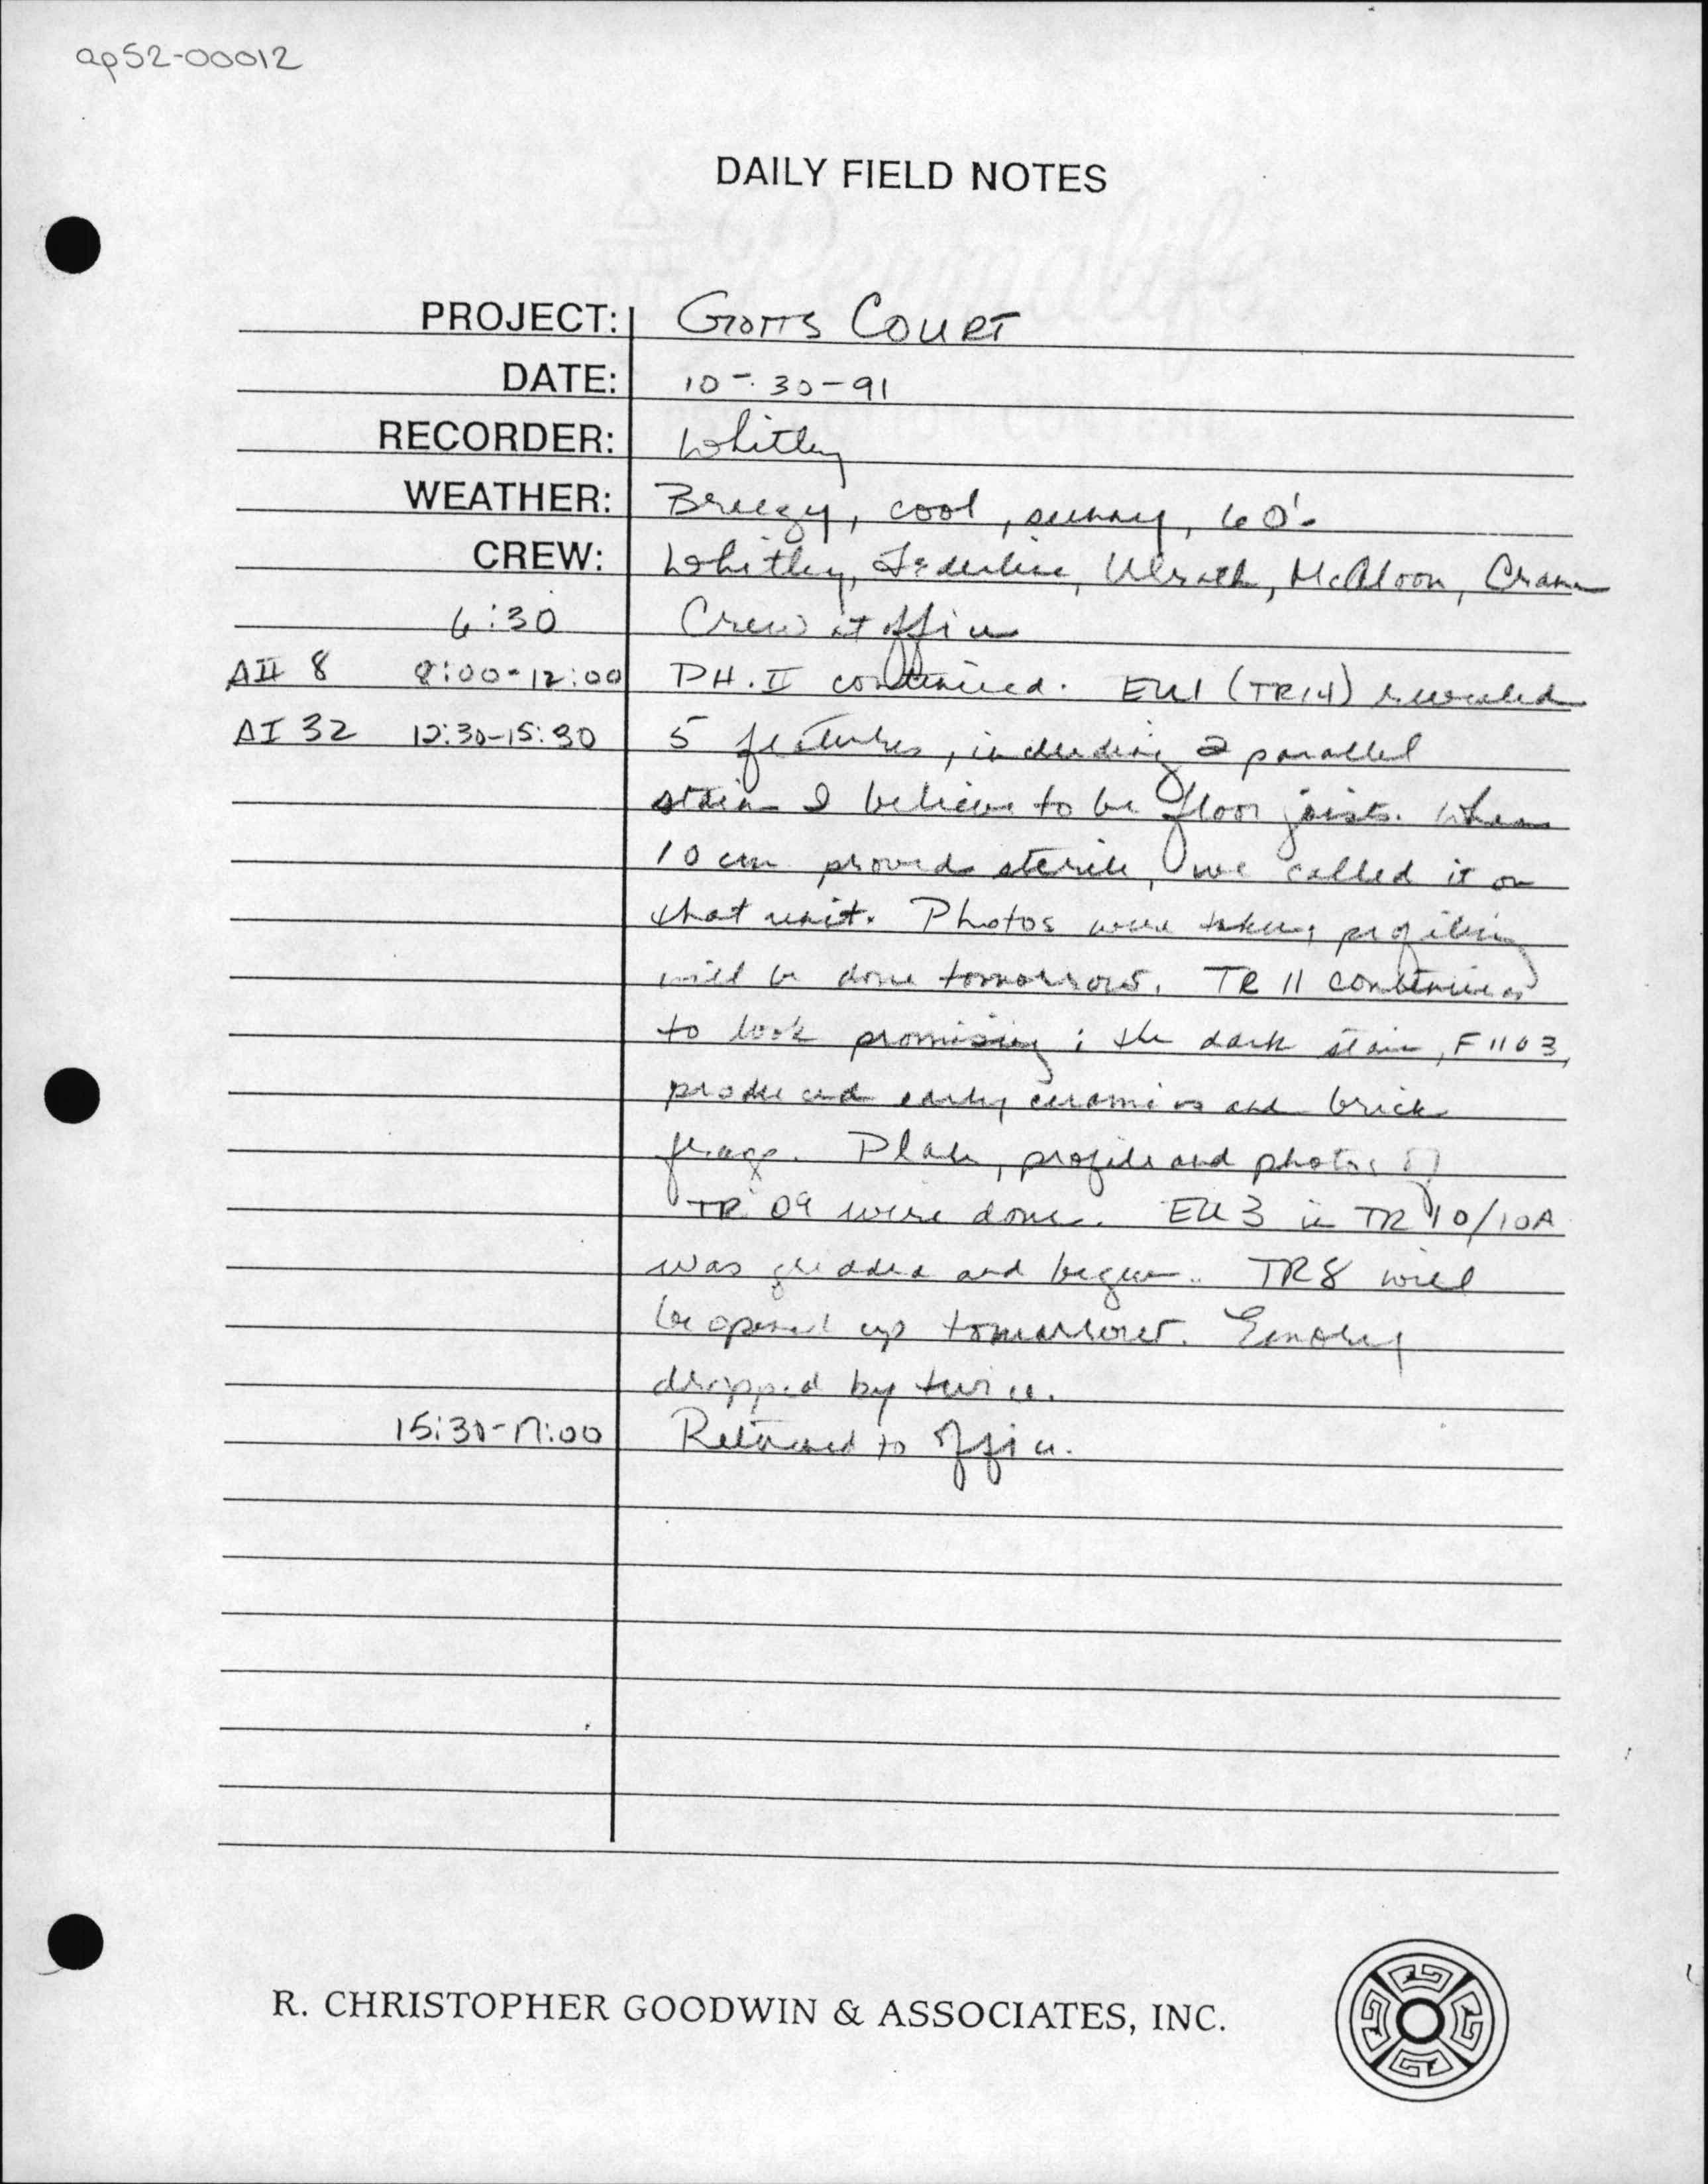 ap52-00012
DAILY FIELD NOTES
PROJECT: Gotts Court
DATE: 10-30-91
RECORDER: Whitley
WEATHER: Breezy, cool, sunny, 60's
CREW: Whitley, Federline, McAloon,
6:30 Crew at office
AII 8 8:00-12:00 PH. II continued. EU1 (TR14) revealed
AI 32 12:30-15:30 5 features, including 2 parallel
stains I believe to be floor joists. When
10 cm proved sterile, we called it on
that unit. Photos were taken, profiling
will be done tomorrow. TR 11 continues
to look promising; the dark stain, F1103,
produced early ceramics and brick
frags. Plan, profile and photos of
TR 09 were done. EU 3 in TR 10/10A
was and begun. TR8 will
be opened up tomorrow. Emory
dropped by twice.
15:30-17:00 Returned to office.
R. CHRISTOPHER GOODWIN & ASSOCIATES, INC.